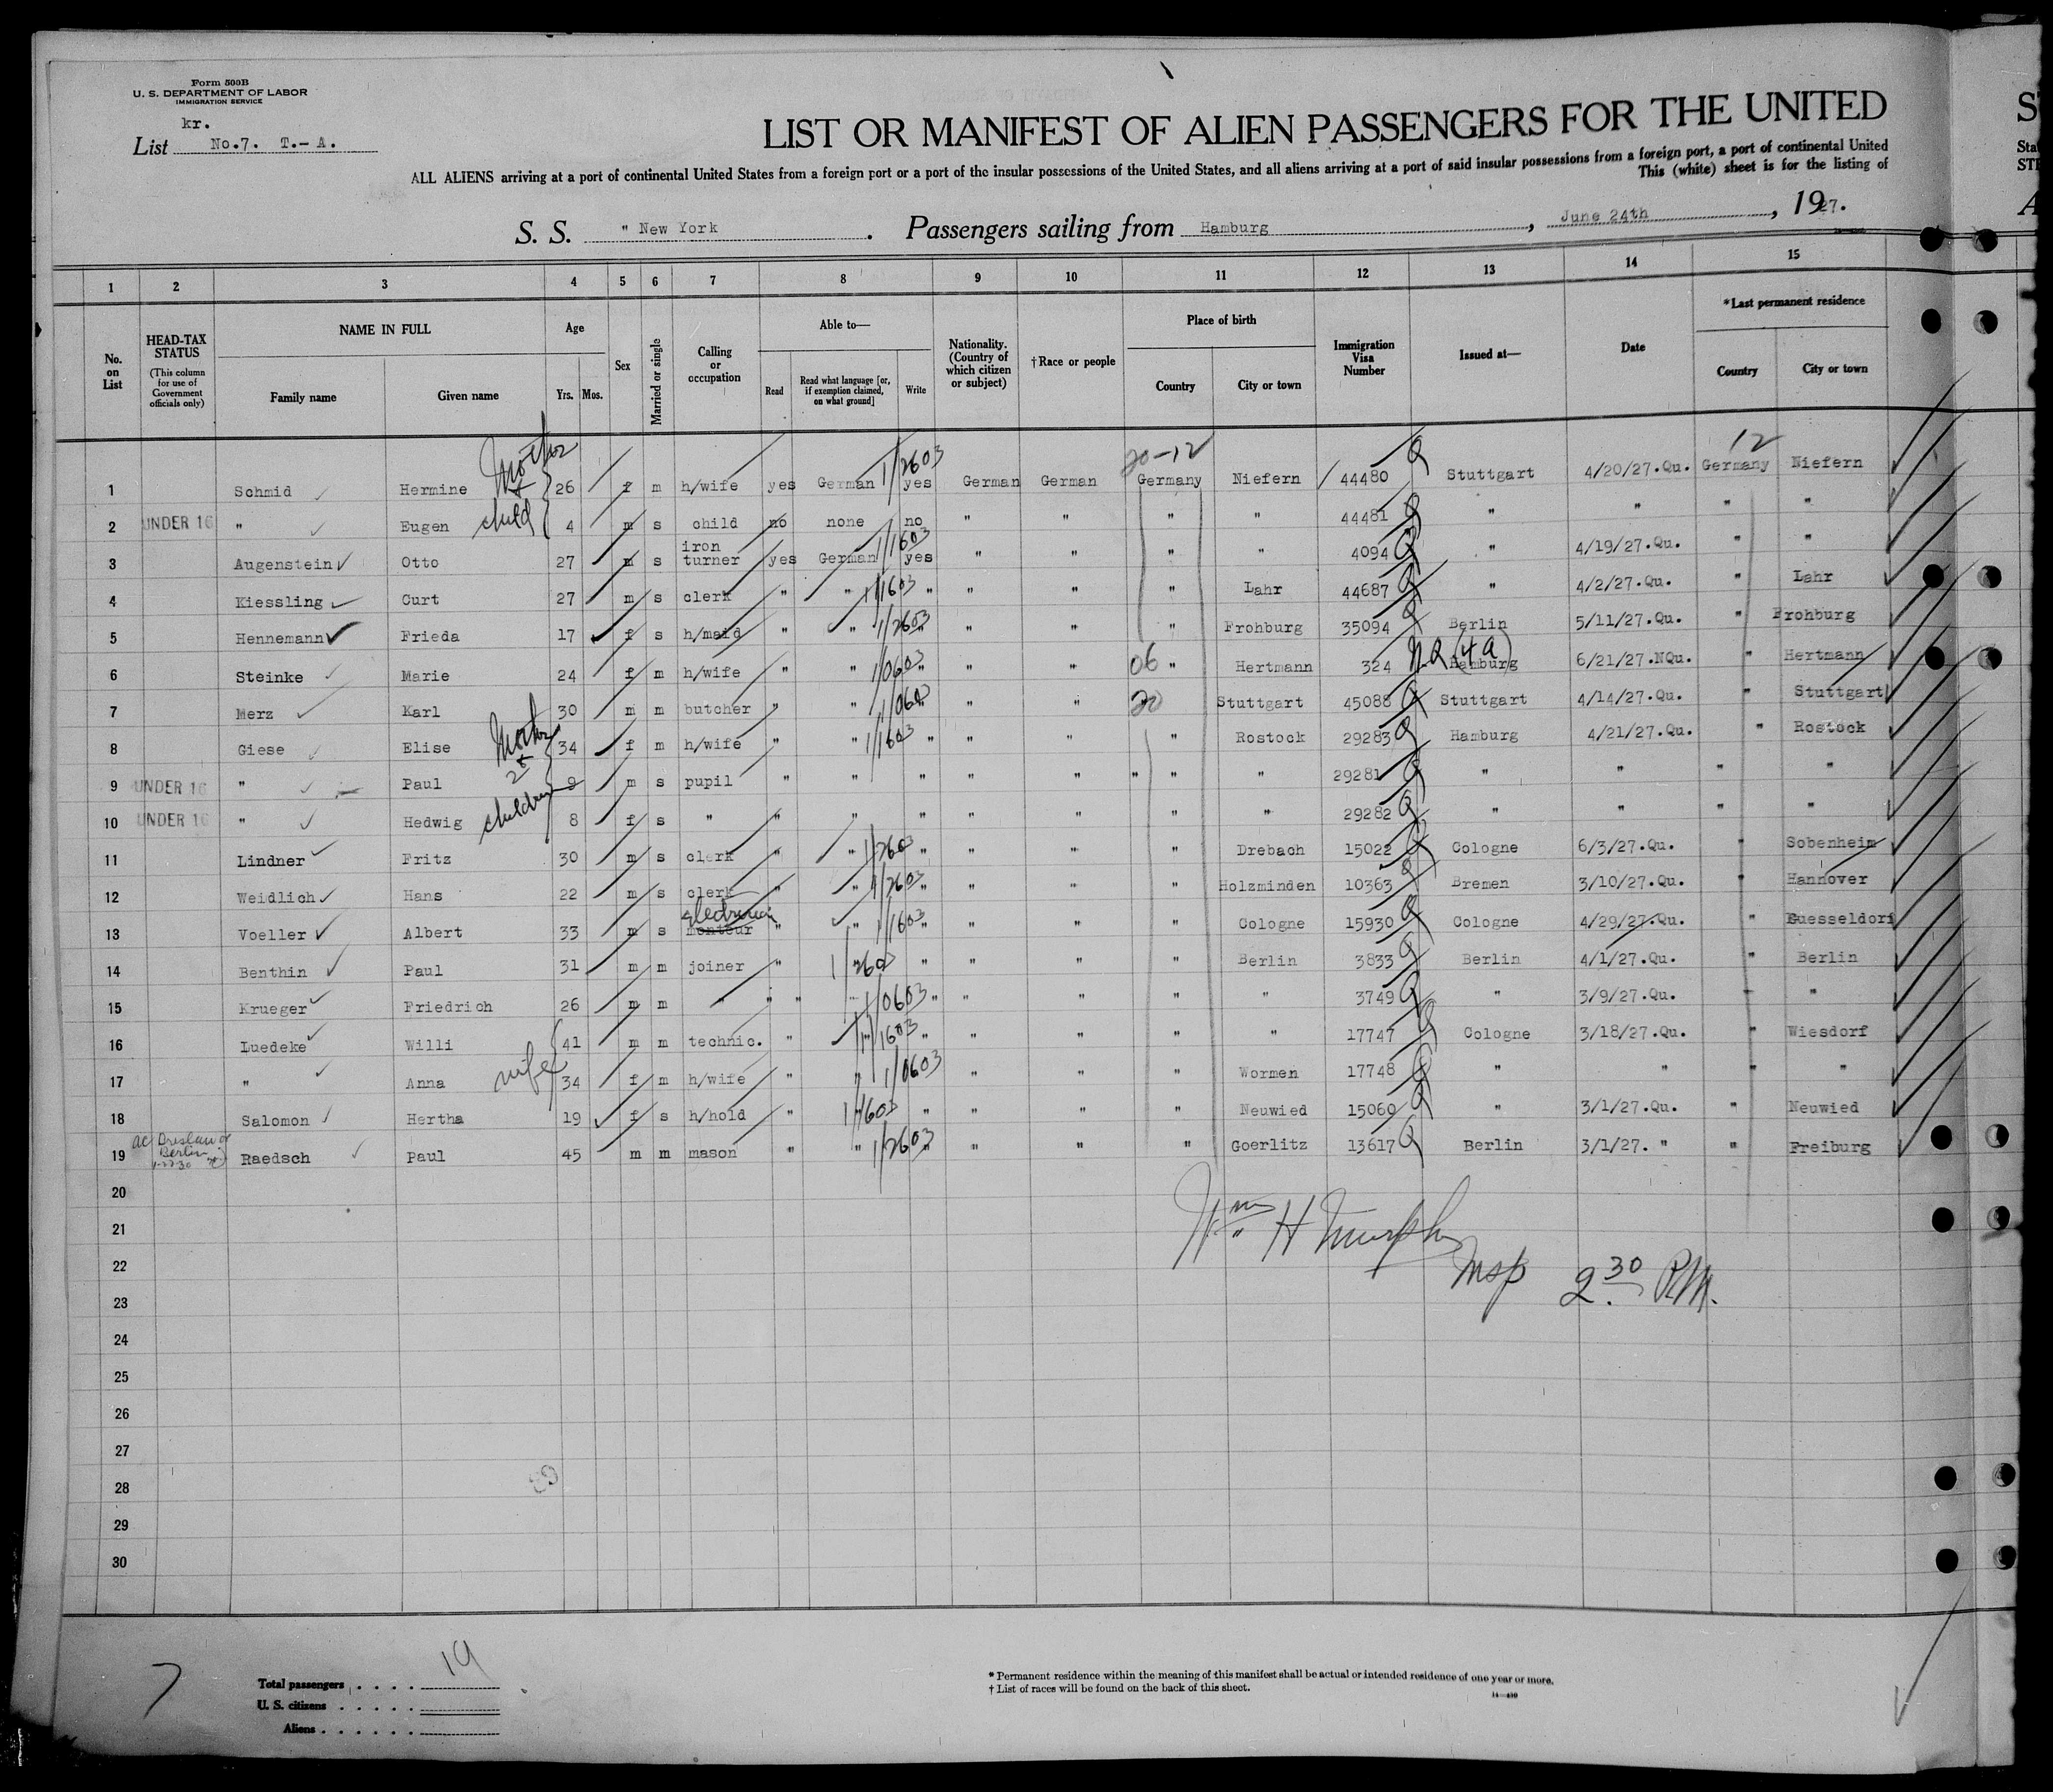 Form 500B
U. S. DEPARTMENT OF LABOR
IMMIGRATION SERVICE
kr.
List No.7. T.- A.
LIST OR MANIFEST OF ALIEN PASSENGERS FOR THE UNITED
ALL ALIENS arriving at a port of continental United States from a foreign port or a port of the insular possessions of the United States, and all aliens arriving at a port of said insular possessions from a foreign port, a port of continental United
This (white) sheet is for the listing of
S. S. " New York . Passengers sailing from Hamburg , June 24th , 1927.
1 2 3 4 5 6 7 8 9 10 11 12 13 14 15
No. on List HEAD-TAX STATUS (This column for use of Government officials only) NAME IN FULL Family name Given name Age Yrs. Mos. Sex Married or single Calling or occupation Able to— Read Read what language [or, if exemption claimed, on what ground] Write Nationality. (Country of which citizen or subject) †Race or people Place of birth Country City or town Immigration Visa Number Issued at— Date *Last permanent residence Country City or town
Mother 1/2603 20-12 Q 12
1 Schmid Hermine 26 f m h/wife yes German yes German German Germany Niefern 44480 Stuttgart 4/20/27.Qu. Germany Niefern
2 UNDER 16 " Eugen child 4 m s child no none no " " " " 44481 Q " " " "
3 Augenstein Otto 27 m s iron turner yes German 1/1603 yes " " " " 4094 Q " 4/19/27.Qu. " "
4 Kiessling Curt 27 m s clerk " " 1/1603 " " " " Lahr 44687 Q " 4/2/27.Qu. " Lahr
5 Hennemann Frieda 17 f s h/maid " " 1/2603 " " " " Frohburg 35094 Q Berlin 5/11/27.Qu. " Frohburg
6 Steinke Marie 24 f m h/wife " " 1/0603 " " " 06 " Hertmann 324 N.Q (4a) Hamburg 6/21/27.NQu. " Hertmann
7 Merz Karl 30 m m butcher " " 1/060 " " " 20 Stuttgart 45088 Q Stuttgart 4/14/27.Qu. " Stuttgart
8 Giese Elise Mother 34 f m h/wife " " 1/1603 " " " " Rostock 29283 Q Hamburg 4/21/27.Qu. " Rostock
9 UNDER 16 " Paul 2 9 m s pupil " " " " " " " " 29281 Q " " " "
10 UNDER 16 " Hedwig children 8 f s " " " " " " " " 29282 Q " " " "
11 Lindner Fritz 30 m s clerk " " 1/2603 " " " " Drebach 15022 Q Cologne 6/3/27.Qu. " Sobenheim
12 Weidlich Hans 22 m s clerk " " 1/2603 " " " " Holzminden 10363 Q Bremen 3/10/27.Qu. " Hannover
13 Voeller Albert 33 m s electrician monteur " " 1/1603 " " " " Cologne 15930 Q Cologne 4/29/27.Qu. " Duesseldorf
14 Benthin Paul 31 m m joiner " " 1/2603 " " " " Berlin 3833 Q Berlin 4/1/27.Qu. " Berlin
15 Krueger Friedrich 26 m m " " " " 1/0603 " " " " " 3749 Q " 3/9/27.Qu. " "
16 Luedeke Willi 41 m m technic. " " 1/1603 " " " " " 17747 Q Cologne 3/18/27.Qu. " Wiesdorf
17 " Anna wife 34 f m h/wife " " 1/0603 " " " Wormen 17748 Q " " " "
18 Salomon Hertha 19 f s h/hold " " 1/1603 " " " " Neuwied 15060 Q " 3/1/27.Qu. " Neuwied
19 Breslau or Berlin 1-27-30 Raedsch Paul 45 m m mason " " 1/2603 " " " " Goerlitz 13617 Q Berlin 3/1/27. " " Freiburg
20
21
22
23
24
25
26
27
28
29
30
Wm H Murphy
Insp 2.30 P.M.
7
Total passengers . . . . 19
U. S. citizens . . . . .
Aliens . . . . . .
* Permanent residence within the meaning of this manifest shall be actual or intended residence of one year or more.
† List of races will be found on the back of this sheet.